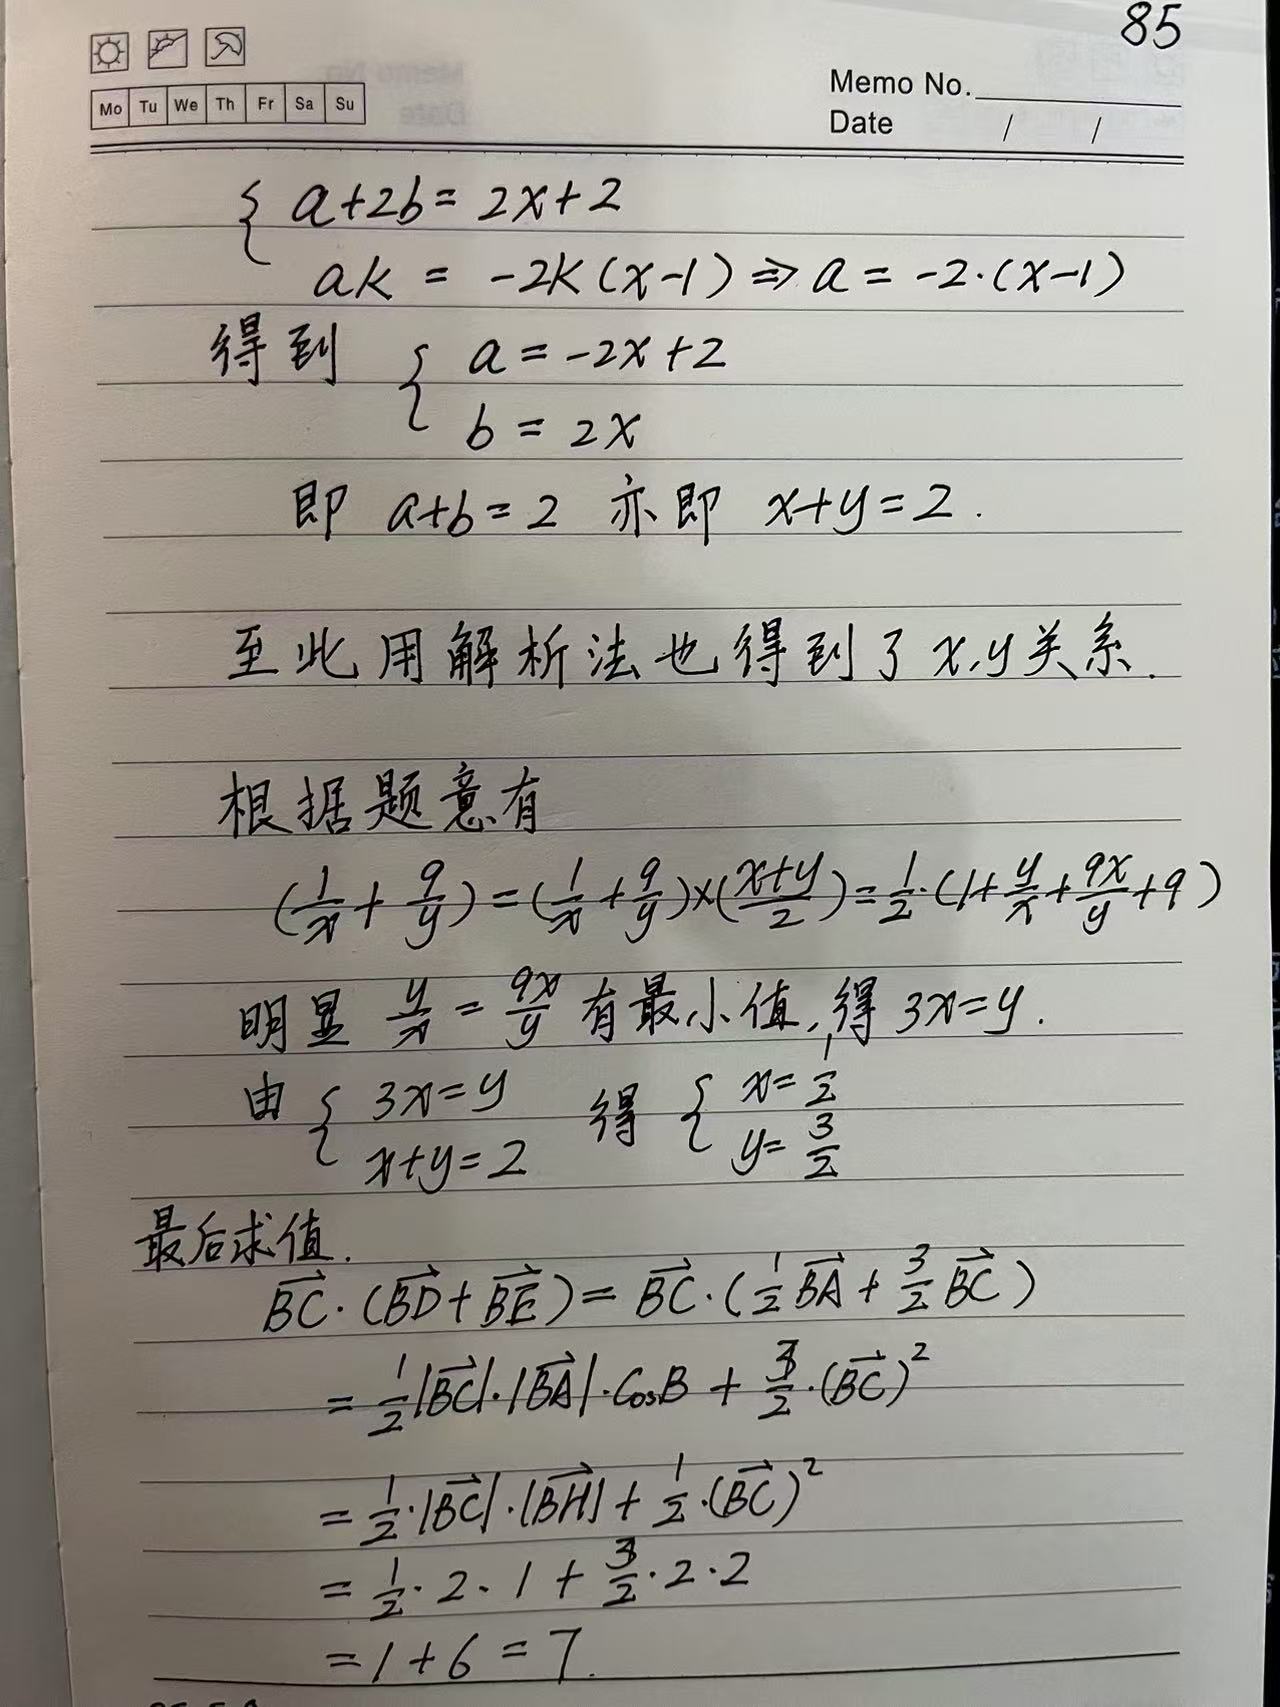 85
Mo Tu We Th Fr Sa Su
Memo No.
Date / /
{ a+2b = 2x+2
ak = -2k(x-1) ⇒ a = -2·(x-1)
得到 { a = -2x+2
b = 2x
即 a+b=2 亦即 x+y=2.
至此用解析法也得到了x,y关系.
根据题意有
(1/x + 9/y) = (1/x + 9/y)×(x+y/2) = 1/2·(1+y/x+9x/y+9)
明显 y/x = 9x/y 有最小值,得 3x=y.
由 { 3x=y 得 { x=1/2
x+y=2 y=3/2
最后求值.
BC·(BD+BE) = BC·(1/2BA + 3/2BC)
= 1/2|BC|·|BA|·CosB + 3/2·(BC)²
= 1/2·|BC|·|BH| + 1/2·(BC)²
= 1/2·2·1 + 3/2·2·2
= 1+6 = 7.